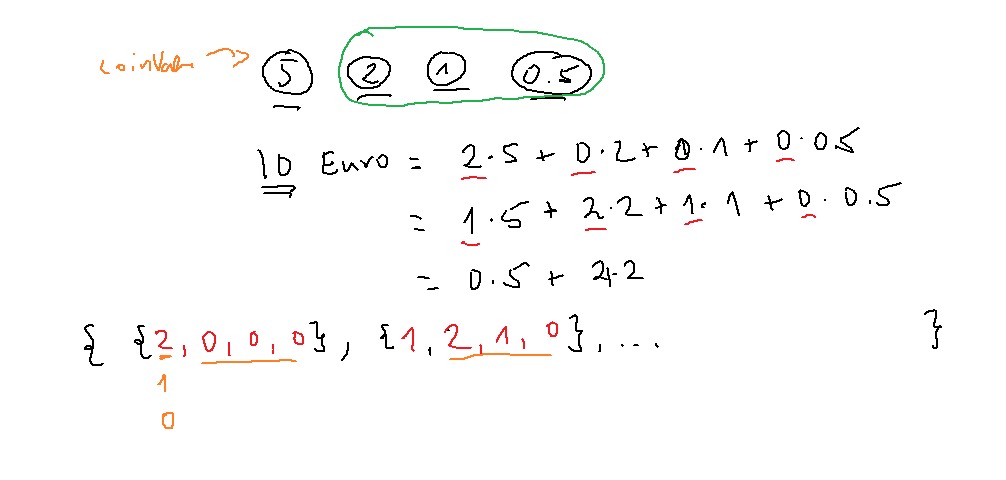 coinValue 5 2 1 0.5
10 Euro = 2·5 + 0·2 + 0·1 + 0·05
= 1·5 + 2·2 + 1·1 + 0·0.5
= 0·5 + 2·2
{ {2, 0, 0, 0}, {1, 2, 1, 0}, ... }
1
0